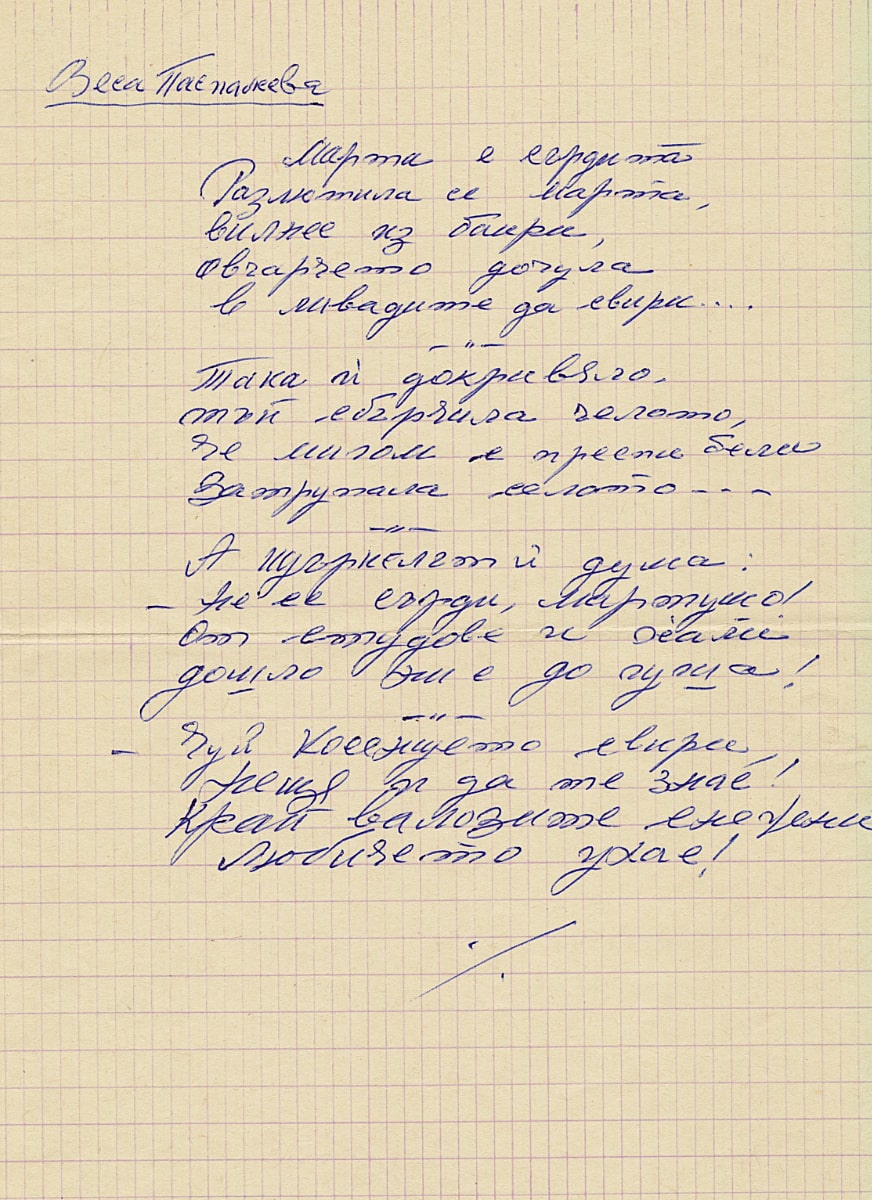 Веса Паспалеева
Марта е сърдита
Разлютила се марта,
вилнее из баири,
Овчарчето дочула
в ливадите да свири....
— " —
Така ѝ докривяло,
тъй сбърчила челото,
че мигом с преспи бели
Затрупала селото ---
— " —
А щъркелът ѝ дума:
— Не се сърди, Мартушо!
От студове и
дошло ни е до гуша!
— " —
— Чуй Косенцето свири,
нещя и да те знае!
Край валозите снежни
Любичето ухае!